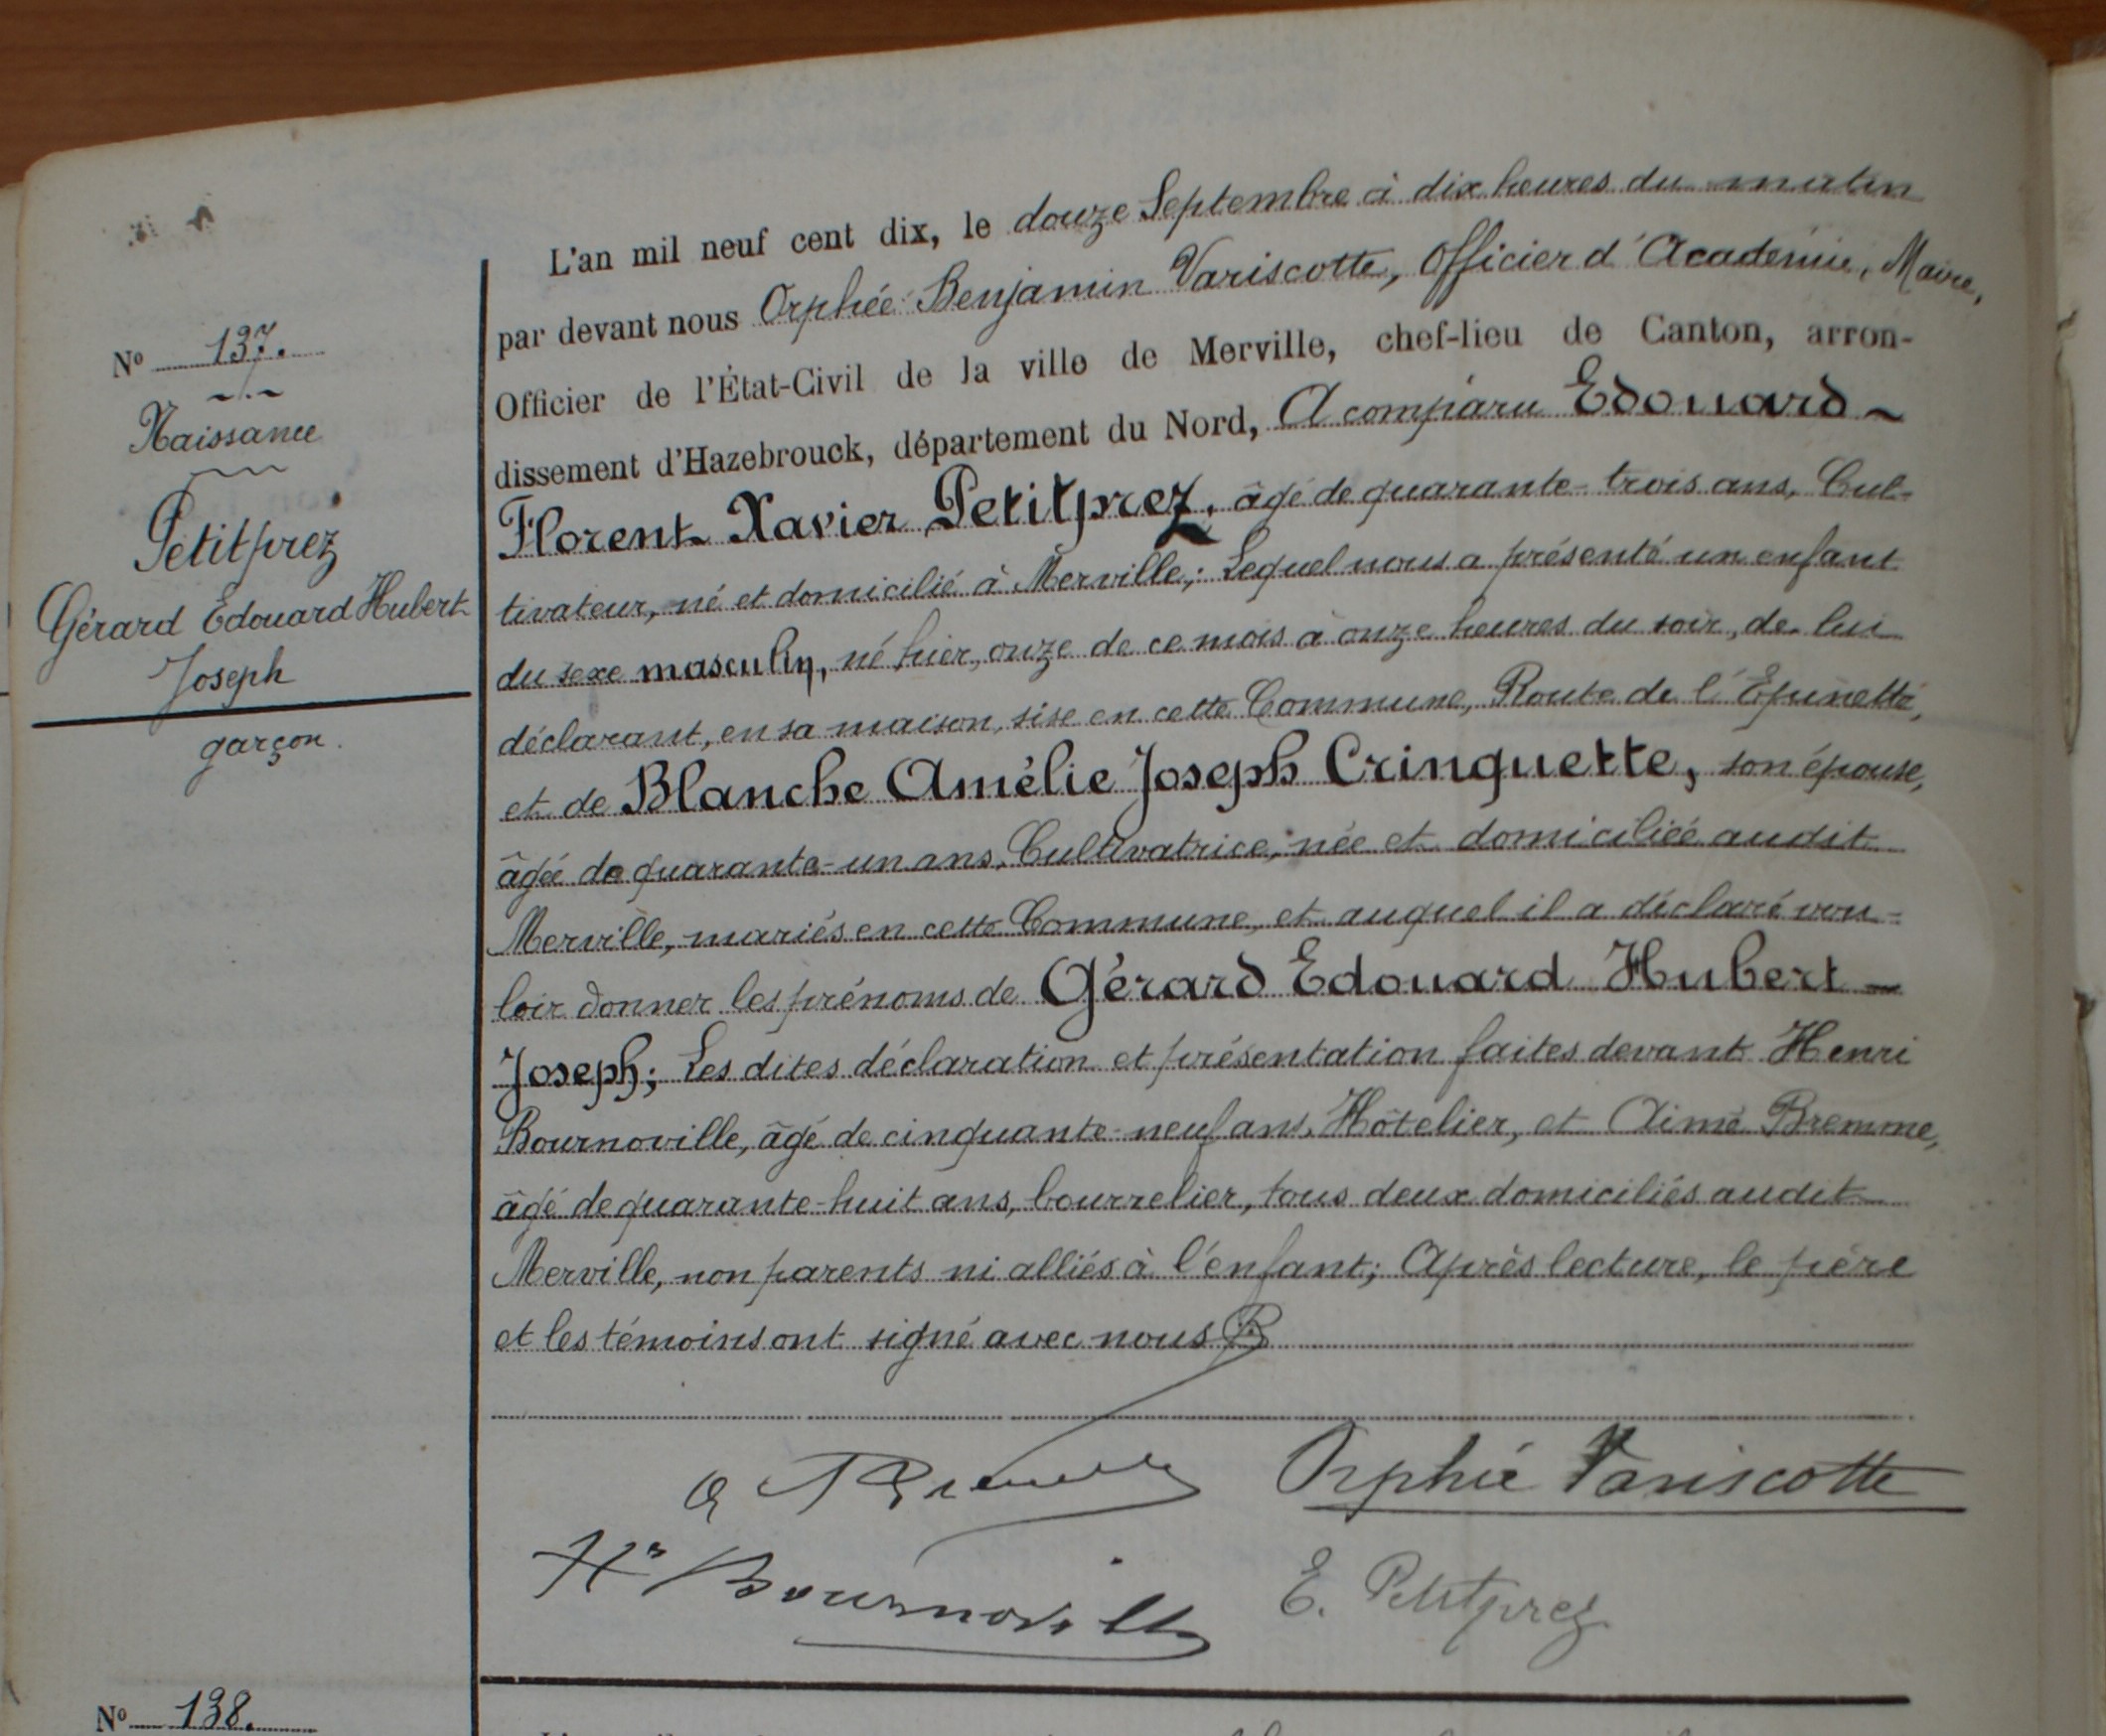 N° 137.
Naissance
Petitprez
Gérard Edouard Hubert
Joseph
garçon.
L'an mil neuf cent dix, le douze Septembre à dix heures du matin
par devant nous Orphée Benjamin Variscotte, Officier d'Académie, Maire,
Officier de l'État-Civil de la ville de Merville, chef-lieu de Canton, arron-
dissement d'Hazebrouck, département du Nord, A comparu Edouard
Florent Xavier Petitprez, âgé de quarante-trois ans, Cul-
tivateur, né et domicilié à Merville; Lequel nous a présenté un enfant
du sexe masculin, né hier, onze de ce mois à onze heures du soir, de lui
déclarant, en sa maison, sise en cette Commune, Route de l'Epinette,
et de Blanche Amélie Joseph Crinquette, son épouse,
âgée de quarante-un ans, Cultivatrice, née et domiciliée audit
Merville, mariés en cette Commune, et auquel il a déclaré vou-
loir donner les prénoms de Gérard Edouard Hubert
Joseph; Les dites déclaration et présentation faites devant Henri
Bournoville, âgé de cinquante-neuf ans, Hôtelier, et Aimé Bremme,
âgé de quarante-huit ans, bourrelier, tous deux domiciliés audit
Merville, non parents ni alliés à l'enfant; Après lecture, le père
et les témoins ont signé avec nous
Orphée Variscotte
Hri Bournoville
E. Petitprez
N° 138.